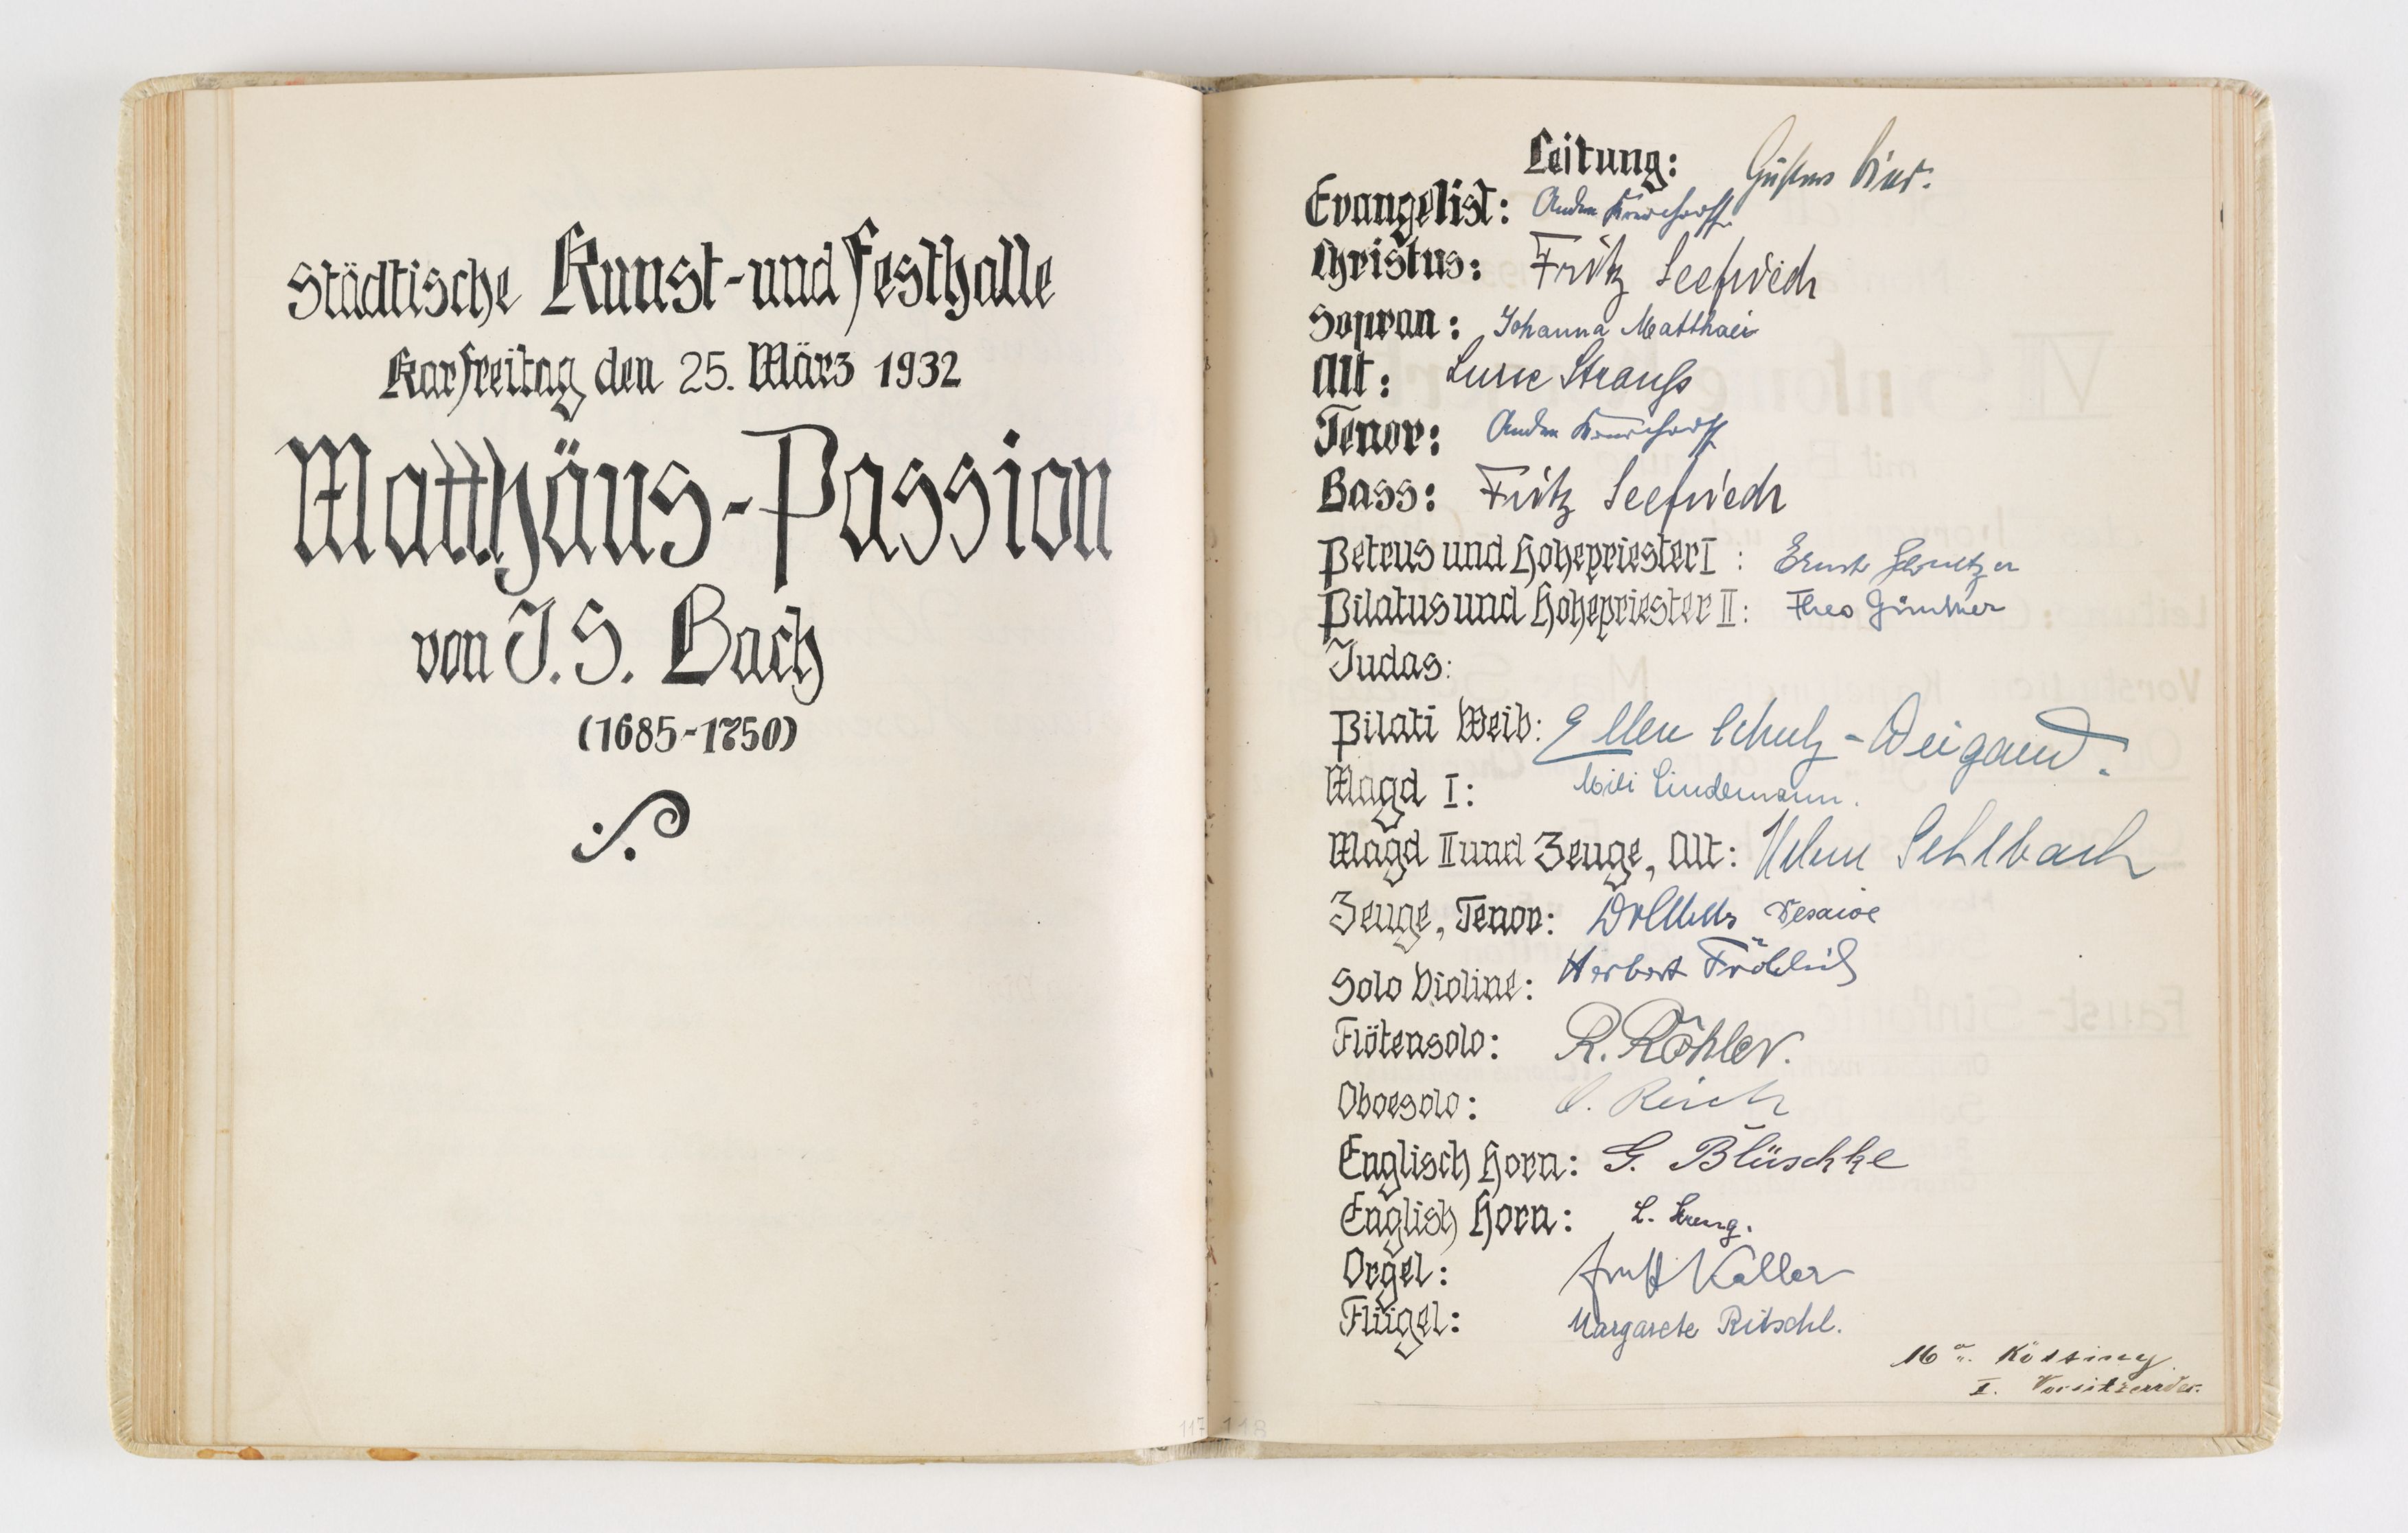 Städtische Kunst-und Festhalle
Karfreitag den 25. März 1932
Matthäus-Passion
von J. S. Bach
(1685-1750)
117
Leitung: Gustav
Evangelist:
Christus: Fritz Seefried
Sopran: Johanna Matthaei
Alt: Strauß
Tenor:
Bass: Fritz Seefried
Petrus und Hohepriester I : Ernst
Pilatus und Hohepriester II: Theo Günther
Judas:
Pilati Weib: Ellen Schulz-Weigand.
Magd I: Lindemann.
Magd II und Zeuge, Alt: Sehlbach
Zeuge, Tenor:
Solo Violine: Herbert Fröhlich
Flötensolo: R. Röhler.
Oboesolo:
Englisch Horn: G. Blüschke
English Horn: L.
Orgel: Keller
Flügel: Margarete Ritschl.
Kötting
I. Vorsitzender.
118